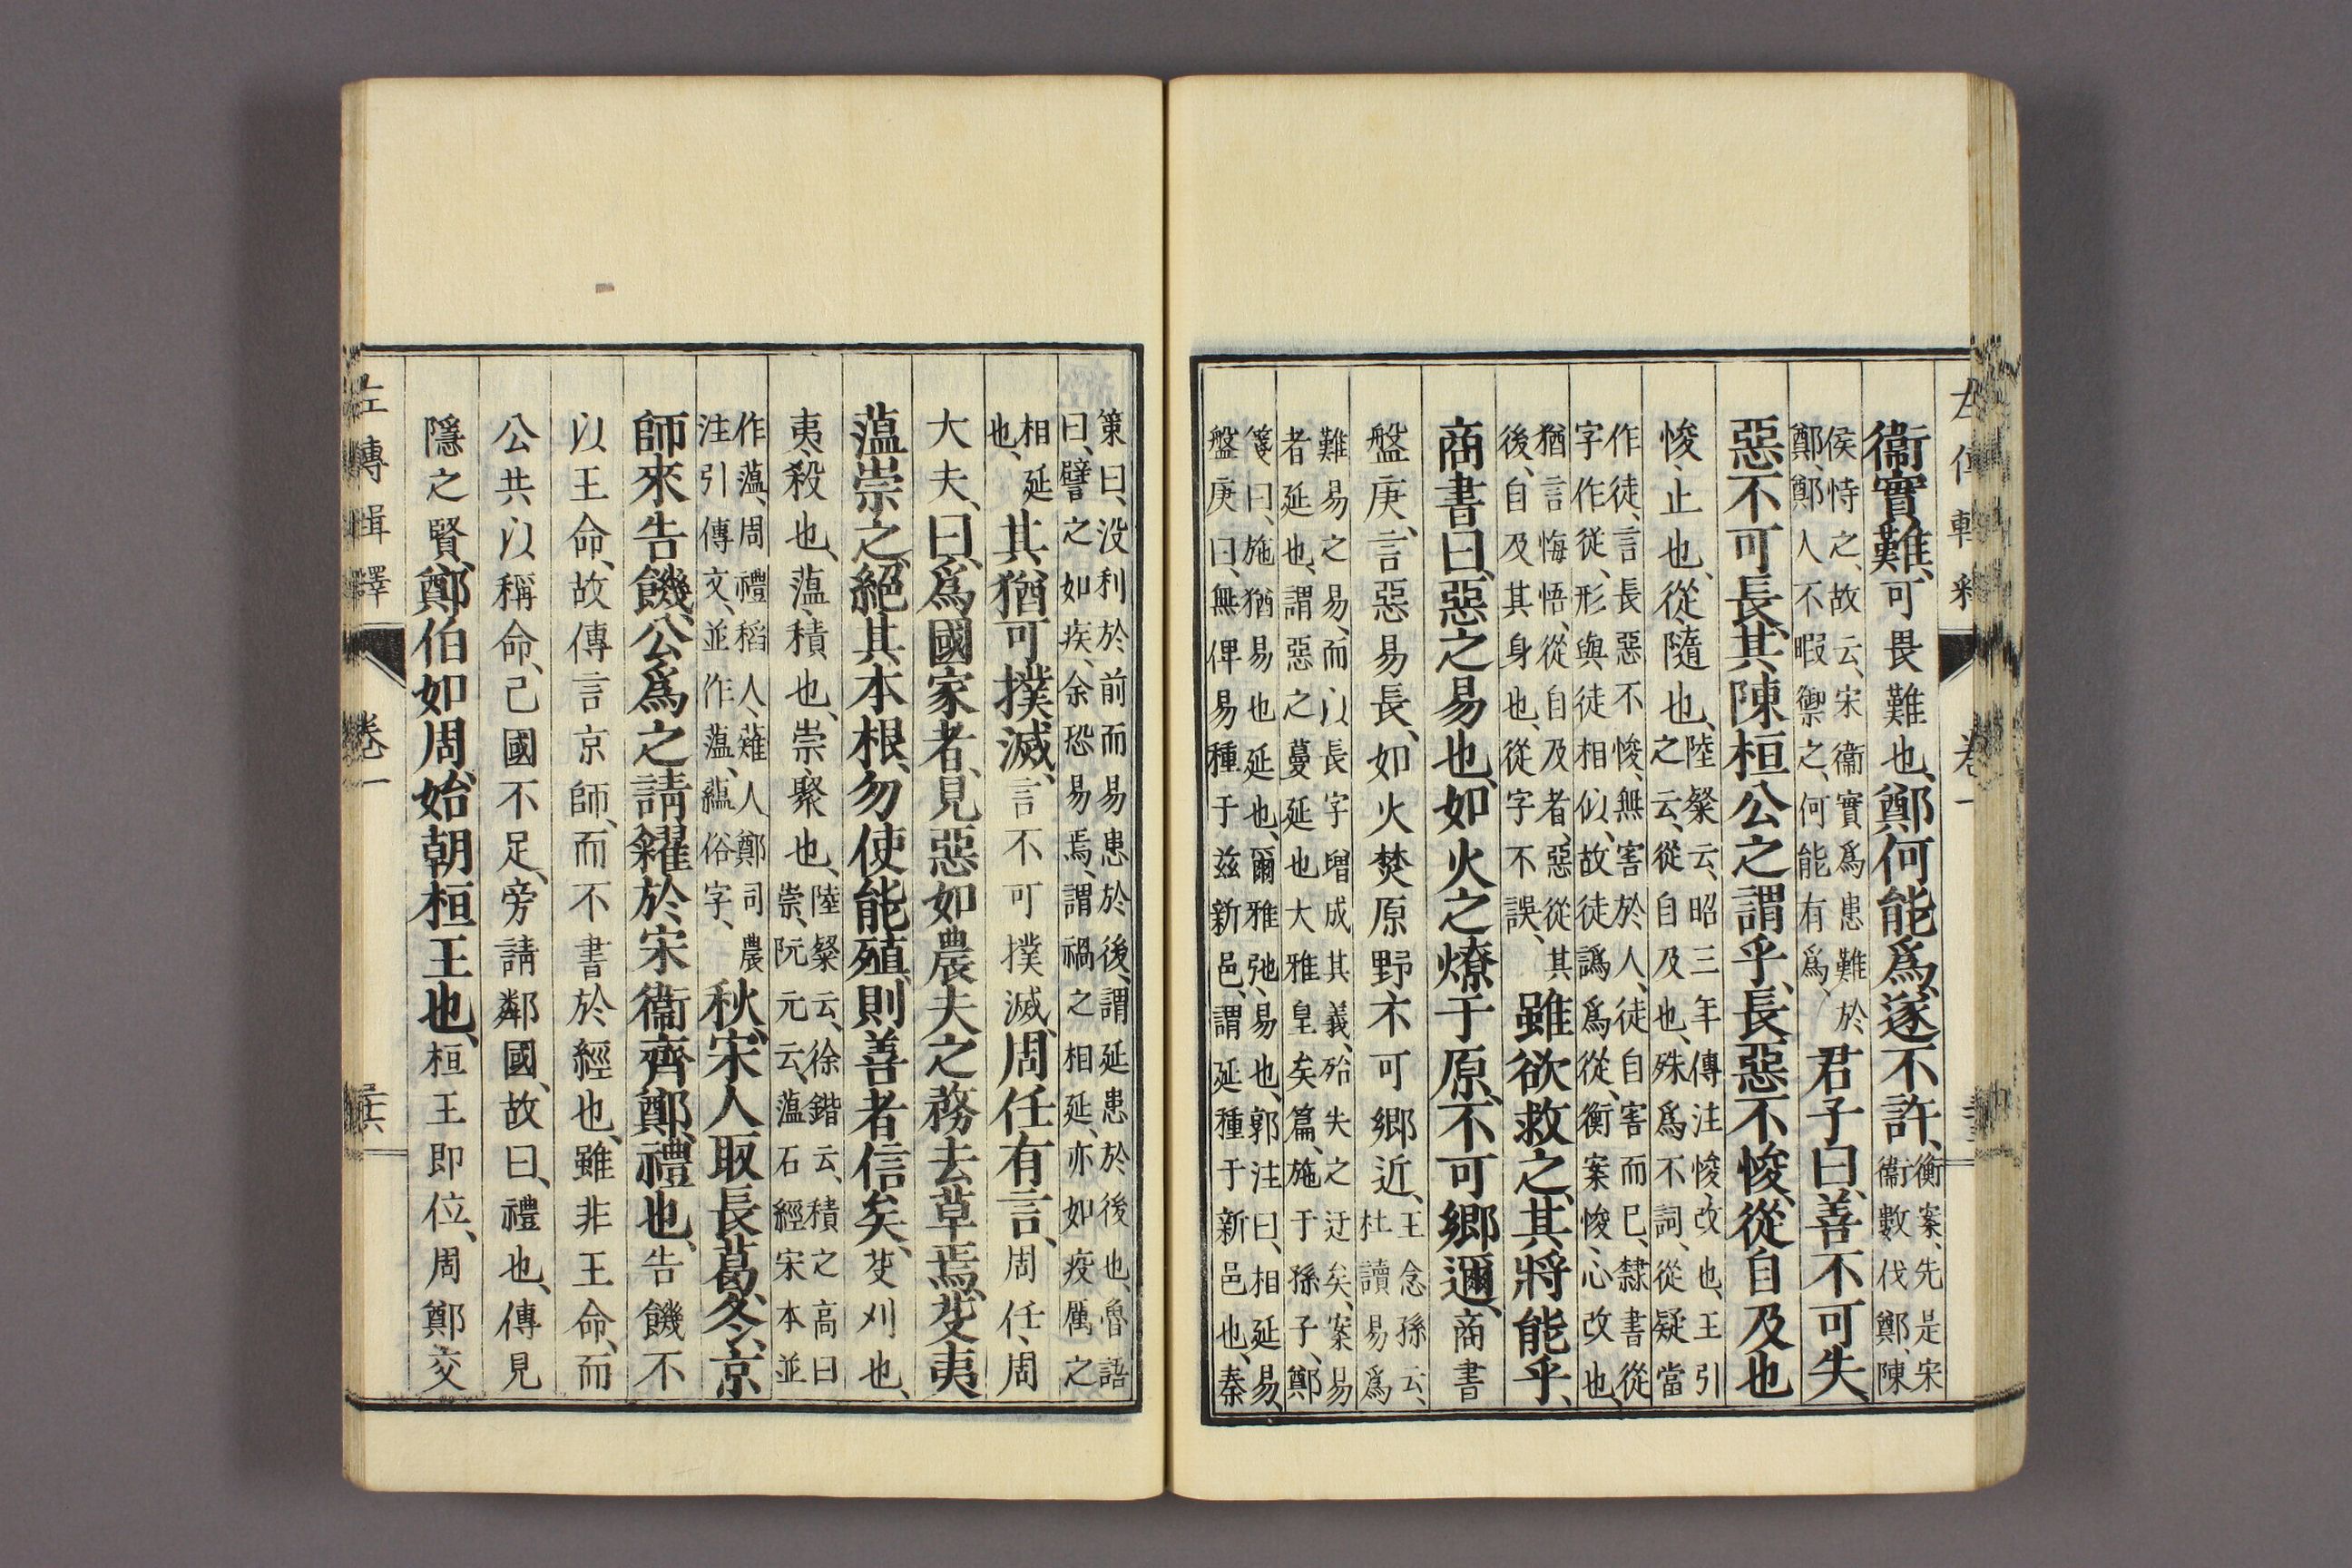 衞實難、可畏難也、鄭何能爲、遂不許、衡案、先是宋衞數伐鄭、陳
侯恃之、故云、宋衞實爲患難於鄭、鄭人不暇禦之、何能有爲、君子曰、善不可失、
惡不可長、其陳桓公之謂乎、長惡不悛、從自及也
悛、止也、從、隨也、陸粲云、昭三年傳注、悛、改也、王引之云、從自及也、殊爲不詞、從疑當
作徒、言長惡不悛、無害於人、徒自害而已、隸書從字作從、形與徒相似、故徒譌爲從、衡案悛、心改也、
猶言悔悟、從自及者、惡從其後、自及其身也、從字不誤、雖欲救之、其將能乎、
商書曰、惡之易也、如火之燎于原、不可鄉邇、商書
盤庚、言惡易長、如火焚原野、不可鄉近、王念孫云、杜讀易爲
難易之易、而以長字增成其義、殆失之迂矣、案易者延也、謂惡之蔓延也、大雅皇矣篇、施于孫子、鄭
箋曰、施猶易也、延也、爾雅、弛、易也、郭注曰、相延易、盤庚曰、無俾易種于茲新邑、謂延種于新邑也、秦
左傳輯釋 卷一
策曰、没利於前而易患於後、謂延患於後也、魯語曰、譬之如疾、余恐易焉、謂禍之相延、亦如疫厲之
相延也、其猶可撲滅、言不可撲滅、周任有言、周任、周
大夫、曰、爲國家者、見惡如農夫之務去草焉、芟夷
薀崇之、絕其本根、勿使能殖、則善者信矣、芟、刈也、
夷、殺也、薀、積也、崇、聚也、陸粲云、徐鍇云、積之高曰崇、阮元云、薀石經宋本並
作薀、周禮稻人、薙人鄭司農注引傳文、並作薀、蘊俗字、秋、宋人取長葛、冬、京
師來告饑、公爲之請糴於宋衞齊鄭、禮也、告饑不
以王命、故傳言京師、而不書於經也、雖非王命、而
公共以稱命、己國不足、旁請鄰國、故曰、禮也、傳見
隱之賢、鄭伯如周、始朝桓王也、桓王即位、周鄭交
左傳輯釋 卷一 三六